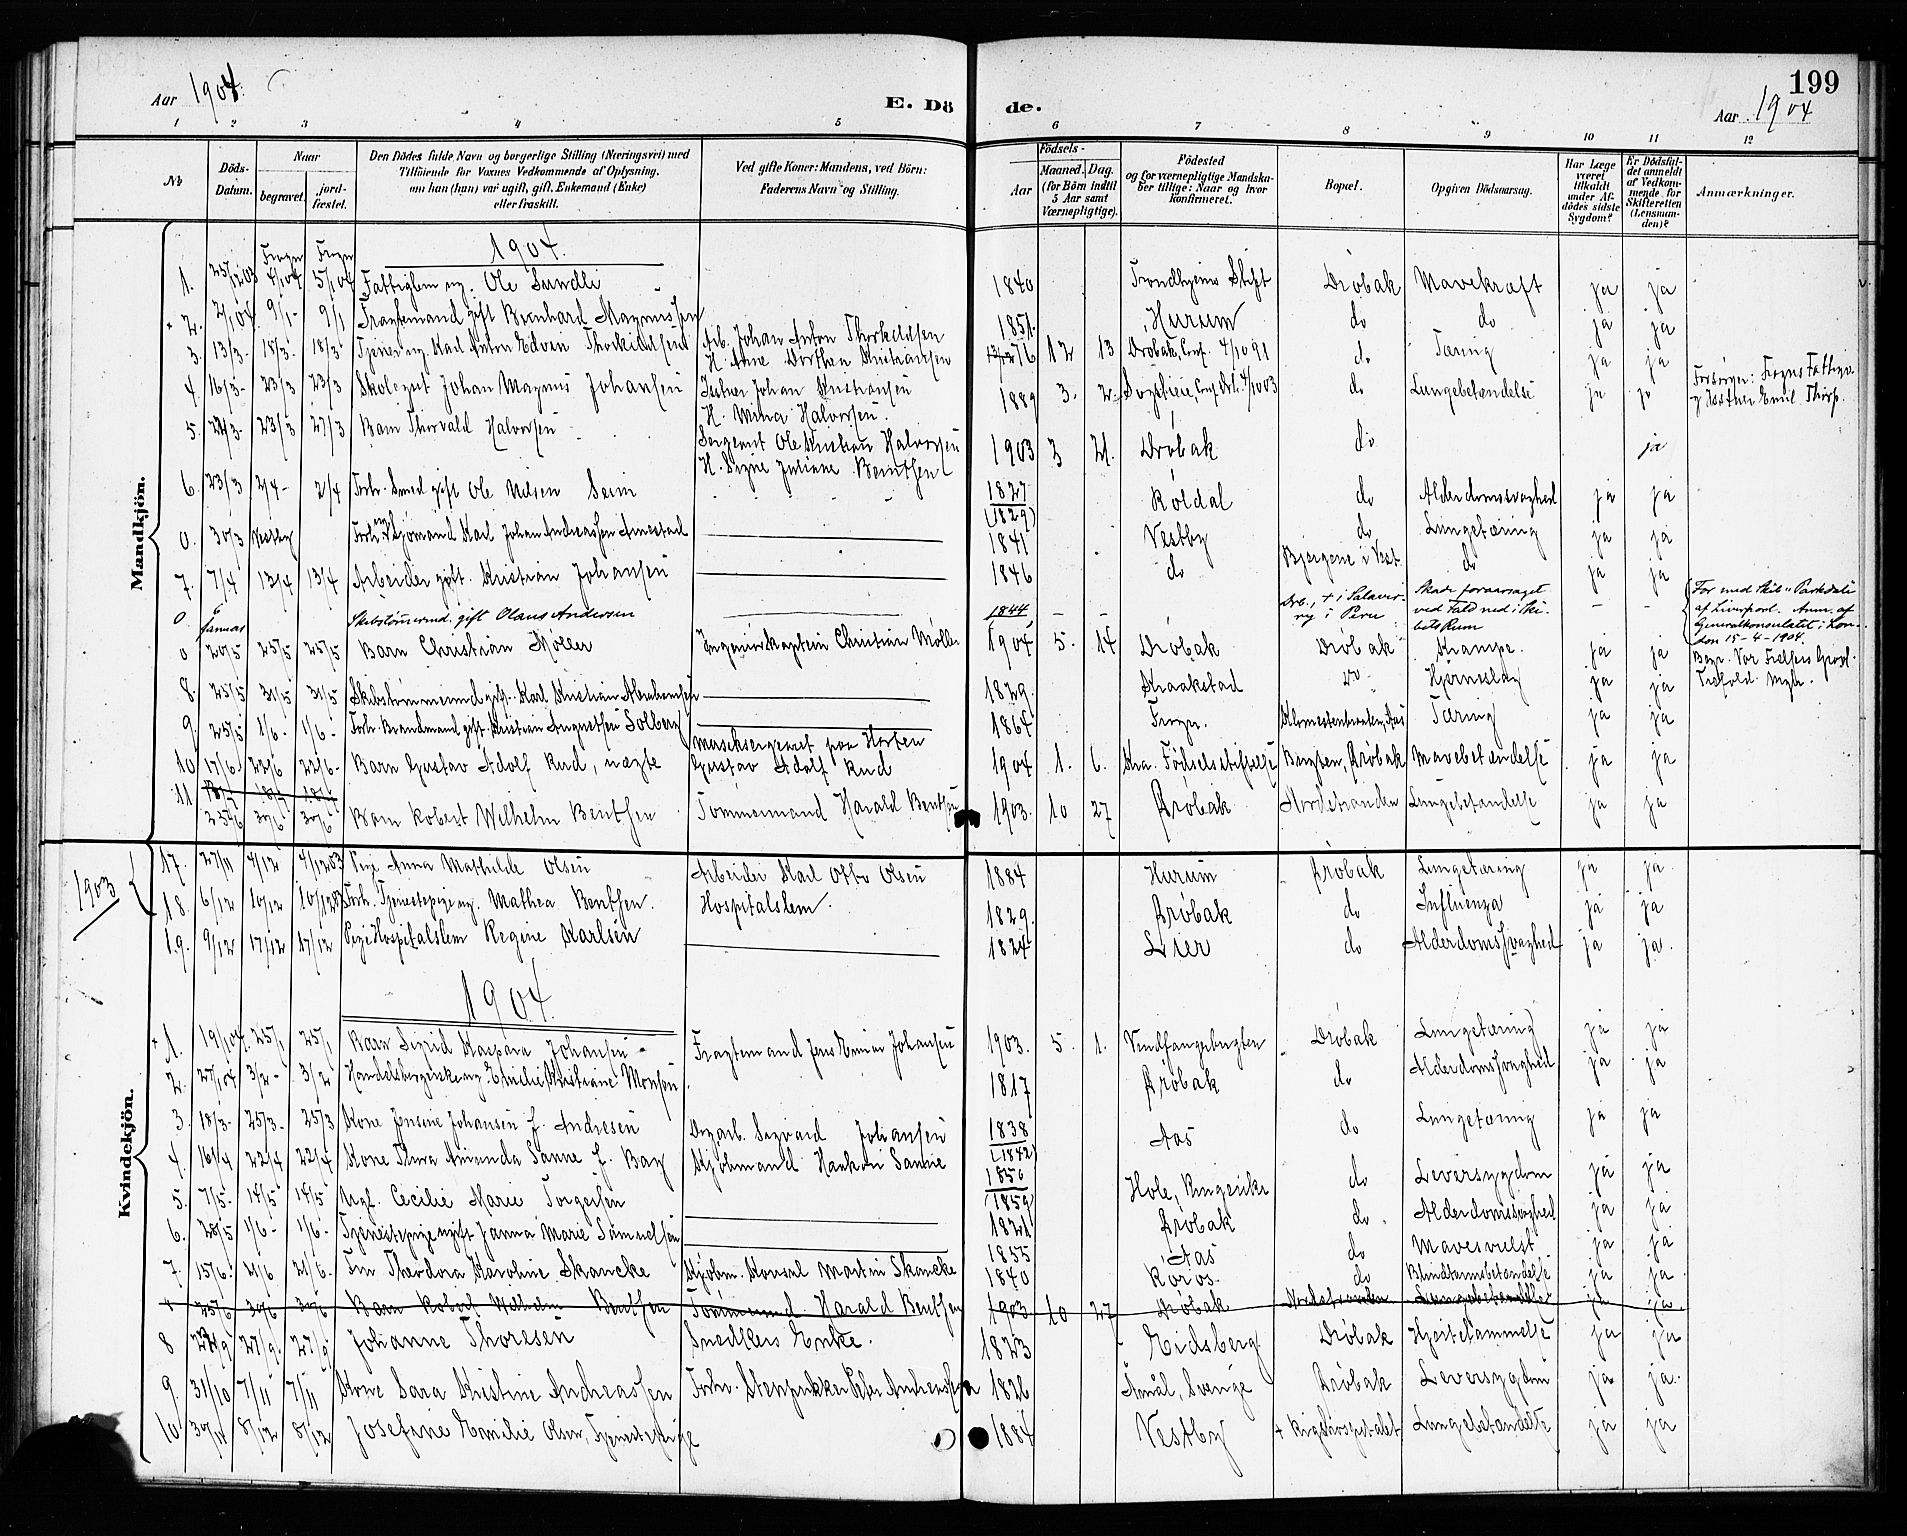 199
Aar 1904.
E. Dö de.
Aar 1904
1 2 3 4 5 6 7 8 9 10 11 12
№
Döds-Datum.
Naar
begravet.
jord-fæstet.
Den Dödes fulde Navn og borgerlige Stilling (Næringsvei) med Tilföiende for Voxnes Vedkommende af Oplysning, om han (hun) var ugift, gift, Enkemand (Enke) eller fraskilt.
Ved gifte Koner: Mandens, ved Börn: Faderens Navn og Stilling.
Födsels-
Aar
Maaned. Dag. (for Börn indtil 5 Aar samt Værnepligtige).
Födested og for værnepligtige Mandskaber tillige: Naar og hvor konfirmeret.
Bopæl.
Opgiven Dödsaarsag.
Har Læge været tilkaldt under Afdödes sidste Sygdom?
Er Dödsfaldet anmeldt af Vedkommende for Skifteretten (Lensmanden)?
Anmærkninger.
Mandkjön.
1904.
Frogn Frogn
1. 25/12 03 4/1 04 5/1 04 Fattiglem ug. Ole Sundli 1840 Trondhjems Stift Drøbak Mavekræft ja ja
2. 2/1 04 9/1 - 9/1 Fragtemand gift Bernhard Magnussen 1851. Hurum do do ja ja
3. 13/3 - 18/3 - 18/3 Tjener ug. Karl Anton Edvin Thorkildsen Arb. Johan Anton Thorkildsen H. Anne Dorthea Kristiansen 76 12 13 Drøbak, Conf. 4/10 91 do Tæring ja ja
4. 16/3 - 23/3 23/3 Skolegut Johan Magnus Johansen Johan Kristiansen H. Mina Halvorsen. 1889 3. 2. 4/10 03 do Lungebetændelse ja ja Forsørger: Frogns Fattigv. Emil Thorp.
5. 24/3 - 23/3 27/3 Barn Thorvald Halvorsen Sergeant Ole Kristian Halvorsen H. Signe Juliane Berntsen 1903 3 21. Drøbak do ja
6. 23/3 2/4 - 2/4 Forh. Smed gift Ole Nilsen Seim 1827 (1829) Røldal do Alderdomssvaghed ja ja
0. 30/3 Vestby Forh. Sjømand Karl Johan Andreassen 1841 Vestby do Lungetæring ja ja
7. 7/4 13/4 13/4 Arbeider gift. Kristian Johansen 1846 do Bjergene i Vest. do ja ja
0. Januar Skibstømrmd. gift Olaus Andersen 1844 - - Drb., + i Salaverry i Peru Skade foraarsaget ved Fald ned i Skibets Rum - - For med Skib "Parkdale" af Liverpool. Anm. af Generalkonsulatet i London 15-4-1904.
0 20/5 25/5 25/5 Barn Christian Møller Ingeniørkaptein Christian Møller 1904 5. 14 Drøbak Drøbak Krampe. ja ja Begr. Vor Frelsers Gravl.
8. 25/5 31/5 31/5 Skibstømmermd gift. Karl Kristian Abrahamsen 1829. Kraakstad do Hjerneslag ja ja
9 25/5 1/6 - 1/6 - Forh. Brandmand gift. Kristian Augustsen Solberg 1864 Frogn. Tæring ja ja
10 17/6 22/6 22/6 - Barn Gustav Adolf Rud, uægte Musiksergeant paa Horten Gustav Adolf Rud 1904 1. 6. Kra. Fødselsstiftelse Bugten, Drøbak Mavebetændelse ja ja
11 25/6 30/6 30/6 Barn Robert Wilhelm Bentsen Tømmermand Harald Bentsen 1903. 10 27 Drøbak Nordstranden Lungebetændelse ja ja
1903
17. 27/11 4/12 4/12 03 Pige Anna Mathilde Olsen Arbeider Karl Otto Olsen 1884 Hurum Drøbak Lungetæring ja ja
18. 6/12 10/12 10/12 03 Forh. Tjenestepige ug. Mathea Berntsen. Hospitalslem. 1829. Drøbak do Influenza ja ja
19. 9/12 17/12 17/12 Pige Hospitalslem Regine Karlsen 1824 Lier do Alderdomssvaghed ja ja.
Kvindekjön.
1904.
1. 19/1 04. 25/1 25/1 Barn Sigrid Kaspara Johansen Fragtemand Jens Einar Johansen 1903. 5. 1. Vindfangerbugten Drøbak Lungetæring ja ja
2. 27/1 04 3/2 - 3/2 Emilie Kristiane Monsen 1817 Drøbak do Alderdomssvaghed ja ja
3. 18/3 - 25/3 - 25/3 Kone Jensine Johansen f. Andresen Dagarb. Sigvard Johansen 1838 (1842) Aas do Lungetæring ja ja
4. 16/4 22/4 22/4 Kone Thora Aminda Sanne f. Bay Kjøbmand Haakon Sanne 1850 (1859) Hole, Ringerike do Leversygdom ja ja
5. 7/5 - 14/5 14/5 Ugf. Cecilie Marie Torgersen 1821 Drøbak do Alderdomssvaghed ja ja
6. 28/5 1/6 - 1/6 - Tjenestepige ugift Janna Marie Samuelsen 1855 Aas do Mavesvulst ja ja
7. 15/6. 21/6 21/6. Fru Theodora Karoline Skancke Kjøbm. Konsul Martin Skancke 1840 Røros. do Blindtarmsbetændelse ja ja
25/6 30/6 30/6 Barn Robert Wilhelm Bentsen Tømmermand Harald Bentsen 1903 10 27 Drøbak Nordstranden Lungebetændelse ja ja
8 27/9. 27/9 Johanne Thoresen Snedkers Enke. 1823 Eidsberg Drøbak Hjertelammelse ja ja
9. 31/10 7/11 7/11 Kone Sara Kristine Andreassen Forh. Stenhukker Peter Andreassen 1826 Åmål, Sverige Drøbak Leversygdom ja ja.
10 30/11 8/12 8/12 Josefine Emilie Olsen, Tjenestepige 1884 Vestby + Rigshospitalet Lungebetændelse ja ja